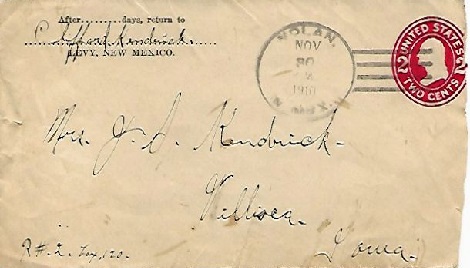 After..........days, return to
Clifford Kendrick.
LEVY, NEW MEXICO.
NOLAN,
NOV
30
1910
N. MEX.
UNITED STATES
2 2
TWO CENTS
Mrs. J. S. Kendrick.
Villisca.
Iowa.
R#2.